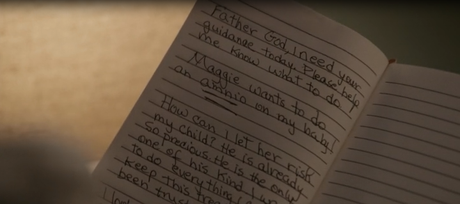 Father God, I need your
guidance today. Please help
me know what to do.
Maggie wants to do
an amnio on my baby!
How can I let her risk
my child? He is already
so precious. He is the only
one of his kind. I
to do everything I
keep this
been